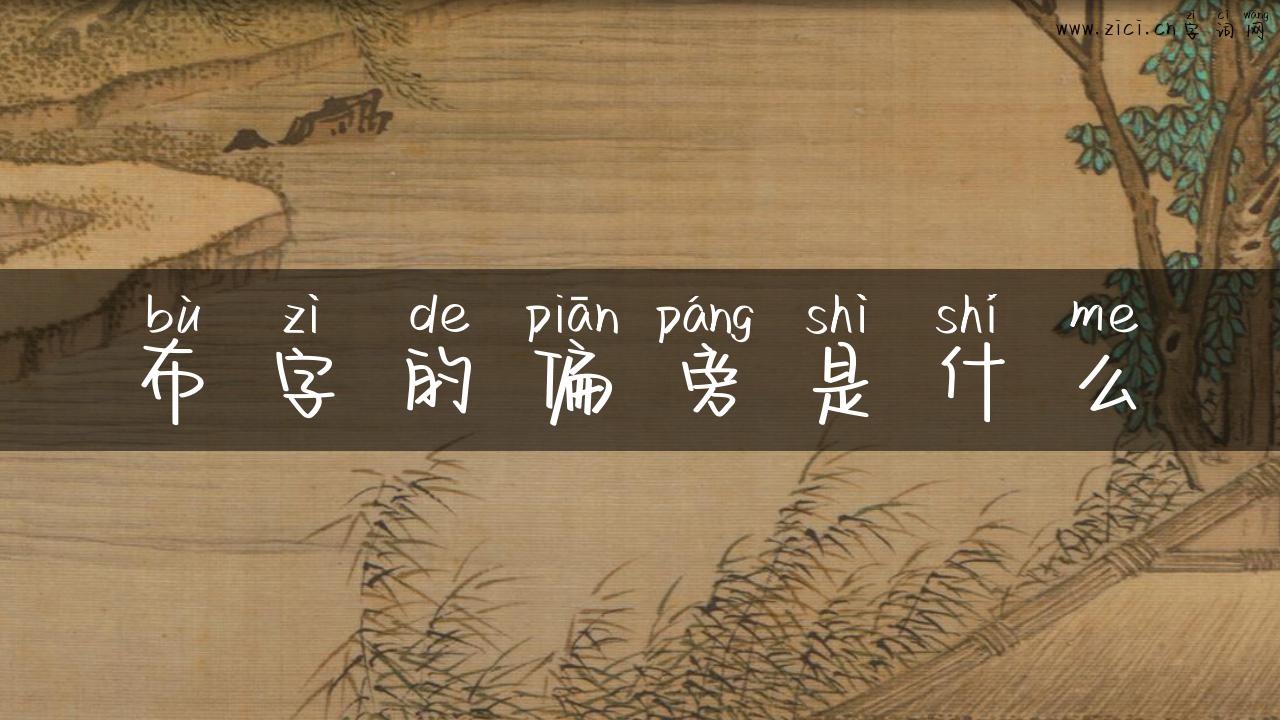 zì cí wǎng
www.zici.cn字词网
bù zì de piān páng shì shí me
布字的偏旁是什么